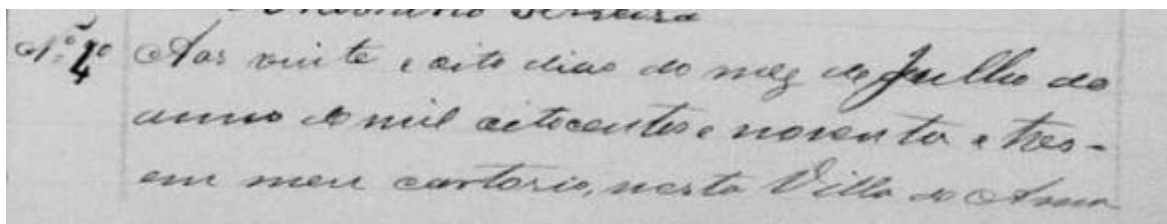 Ferreira
Nº 4º Aos vinte e oito dias do mez de Julho do
anno de mil oitocentos e noventa e tres
em meu cartorio, nesta Villa do